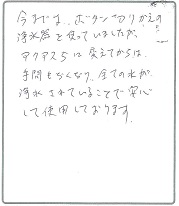 今までは、ボタン切りかえの
浄水器を使っていましたが、
アクアスSに変えてからは、
手間もなくなり、全ての水が
浄水されていることで安心
して使用しております。